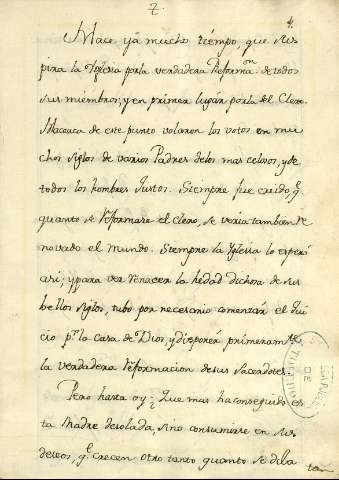 2
4.
Hace yá mucho tiempo, que sus
pira la Yglesia por la verdadera Reformaon. de todos
sus miembros; y en primer lugar por la del Clero.
Acerca de este punto volaron los votos en mu
chos siglos de varios Padres delos mas celosos, y de
todos los hombres Justos. Siempre fue creido, q.e
quanto se reformase el Clero, se veria tambien re
novado el Mundo. Siempre la Yglesia lo esperó
asi; y para ver renacer la hedad dichosa de sus
bellos siglos, tubo por necesario comenzar el Jui
cio p.r la casa de Dios, y disponer primeramte.
la verdadera reformacion de sus Sacerdotes.
Pero hasta oy ¿ Que mas ha conseguido es
ta Madre desolada, sino consumirse en sus
deseos, q.e crecen otro tanto quanto se dila
tan
DE